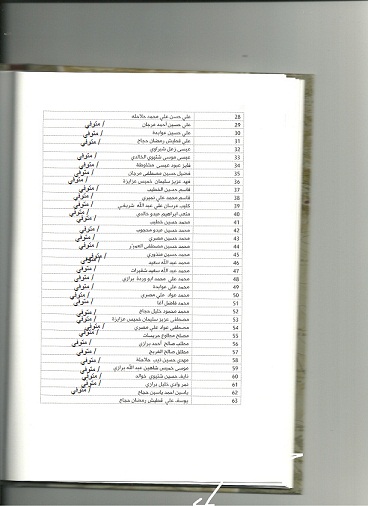 28 علي حسن علي محمد حلاحله
29 علي حسين أحمد مرجان / متوفي
30 علي حسين عوايده / متوفي
31 علي قطيش رمضان حجاج / متوفي
32 عيسى زعل شبراوي
33 عيسى موسى شتيوي الخالدي / متوفي
34 فايز عبود عيسى / متوفي
35 فضيل حسين مصطفى مرجان / متوفي
36 فهد عزيز سليمان خميس عزايزة / متوفي
37 قاسم حسين الخطيب / متوفي
38 قاسم محمد علي نميري / متوفي
39 علي عبد الله / متوفي
40 ابراهيم عبدو خالدي / متوفي
41 محمد حسين خطيب / متوفي
42 محمد حسين عبدو محجوب / متوفي
43 محمد حسين مصري / متوفي
44 محمد حسين مصطفى / متوفي
45 محمد حسين / متوفي
46 محمد عبد الله سعيد / متوفي
47 محمد عبد الله سعيد شقيرات / متوفي
48 محمد علي محمد ابو وردة برازي / متوفي
49 محمد علي عوايدة / متوفي
50 محمد عواد علي مصري / متوفي
51 محمد فاضل اغا / متوفي
52 محمد محمود خليل حجاج / متوفي
53 مصطفى عزيز سليمان خميس عزايزة / متوفي
54 مصطفى عواد علي مصري / متوفي
55 مصلح مطلوع / متوفي
56 مطلب صالح أحمد برازي / متوفي
57 مطلق صالح الفريح / متوفي
58 مهدي حسين ذيب حلاحلة / متوفي
59 موسى خميس شاهين عبد الله برازي / متوفي
60 نايف حسين شتيوي خوالد / متوفي
61 نمر وادي خليل برازي / متوفي
62 ياسين أحمد ياسين حجاج / متوفي
63 يوسف علي قطيش رمضان حجاج